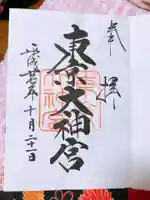 奉拝
東京大神宮
平成廿七年十月二十一日